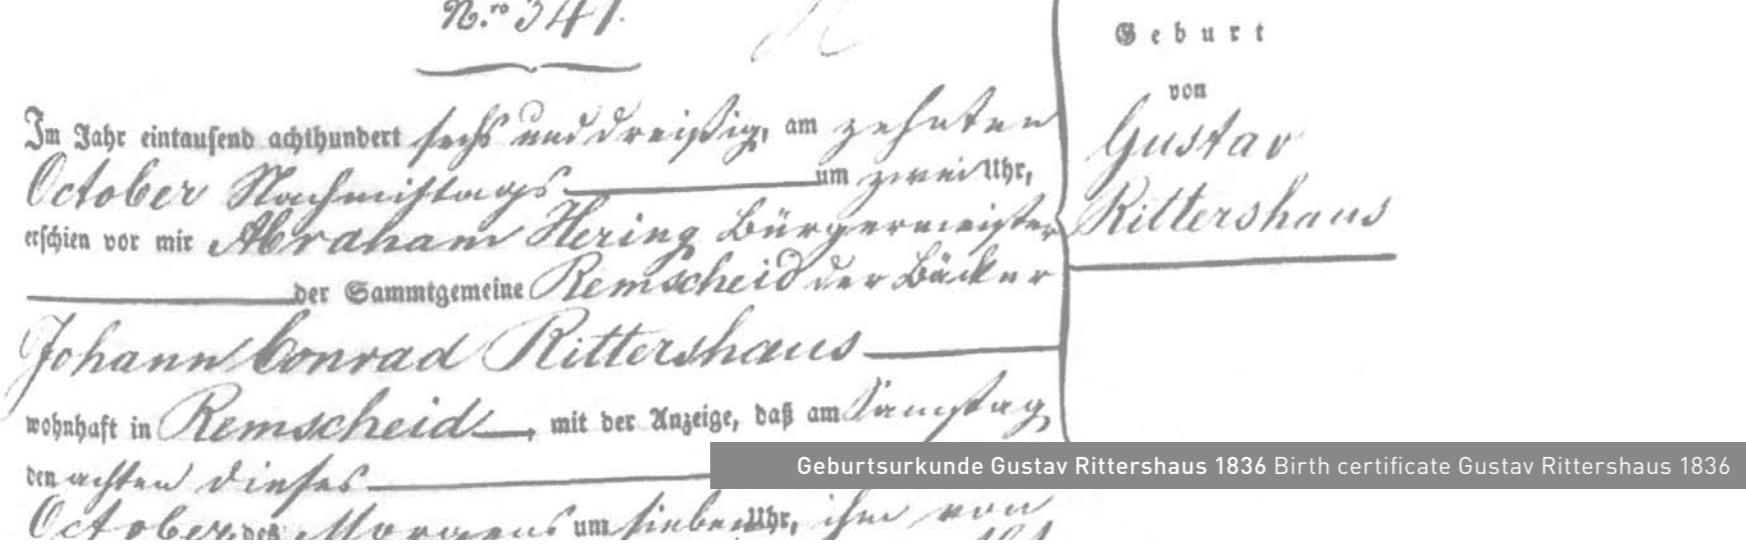 N.ro 341.
Im Jahr eintausend achthundert sechs und dreißig, am zehnten
October Nachmittags um zwei Uhr,
erschien vor mir Abraham Hering Bürgermeister
der Sammtgemeine Remscheid der Bäcker
Johann Conrad Rittershaus
wohnhaft in Remscheid, mit der Anzeige, daß am Samstag
den achten dieses
October des Morgens um sieben Uhr, ihm von
Geburt
von
Gustav
Rittershaus
Geburtsurkunde Gustav Rittershaus 1836 Birth certificate Gustav Rittershaus 1836